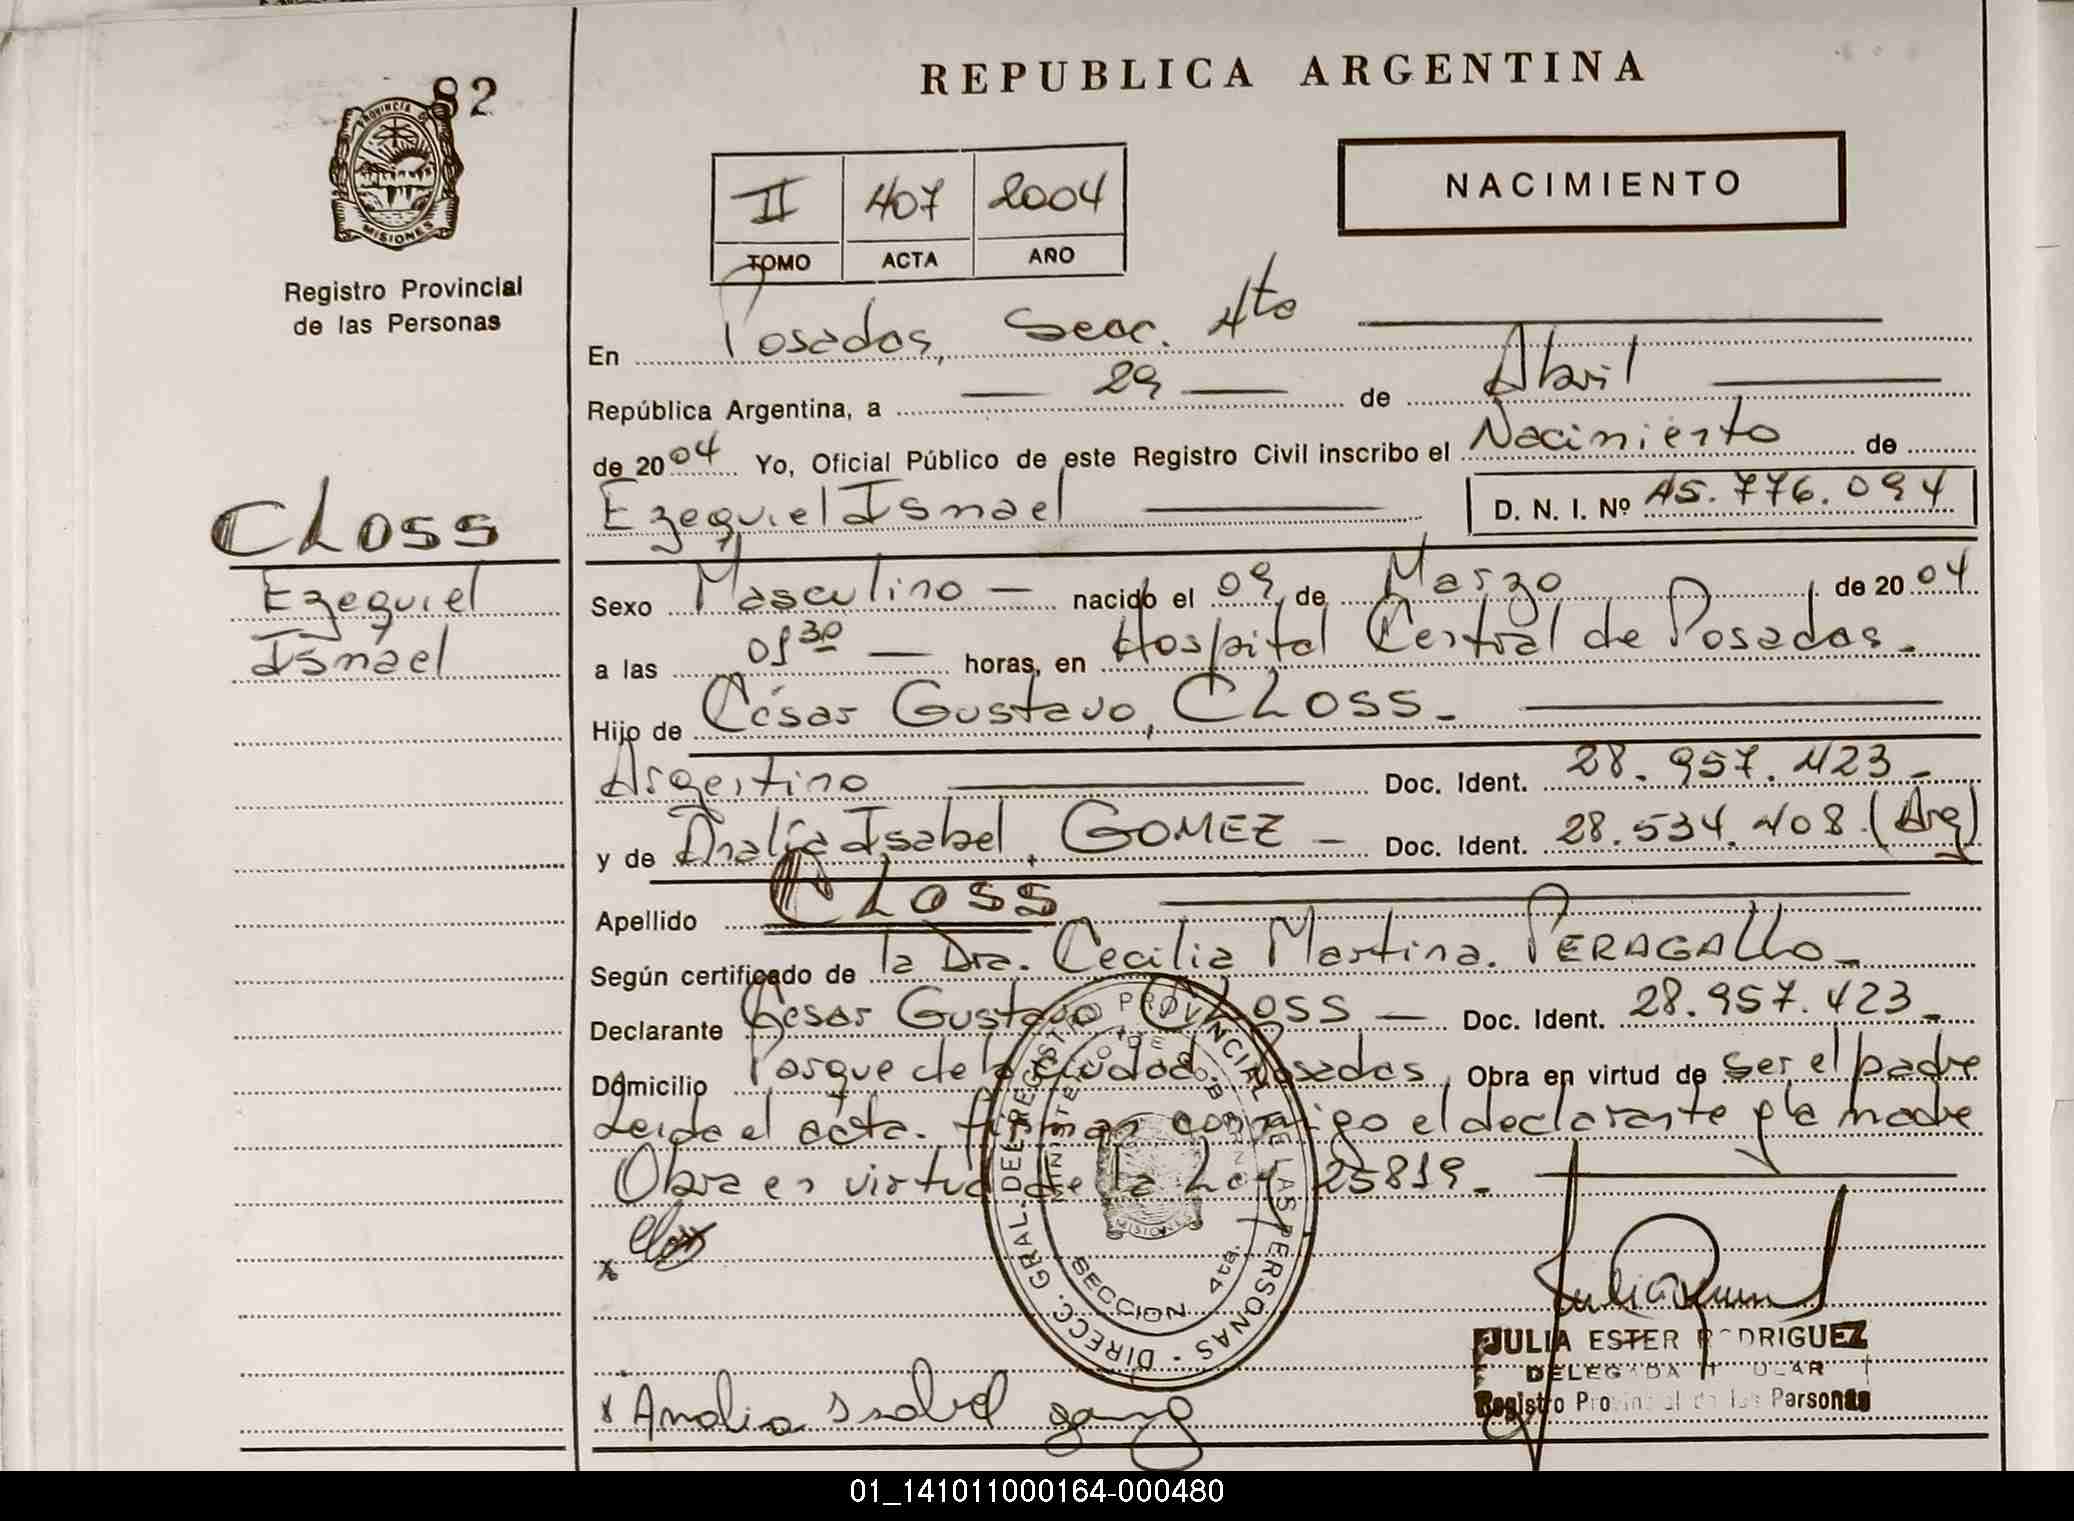 82
PROVINCIA DE
MISIONES
Registro Provincial
de las Personas
CLOSS
Ezequiel
Ismael
REPUBLICA ARGENTINA
II 407 2004
TOMO ACTA AÑO
NACIMIENTO
En Posadas, Secc. 4ta
República Argentina, a 29 de Abril
de 2004 Yo, Oficial Público de este Registro Civil inscribo el Nacimiento de
Ezequiel Ismael D. N. I. Nº 45.776.094
Sexo Masculino — nacido el 09 de Marzo de 2004
a las 01 30 — horas, en Hospital Central de Posadas.
Hijo de César Gustavo, CLOSS.
Argentino Doc. Ident. 28.957.423
y de Analía Isabel, GOMEZ — Doc. Ident. 28.534.408 (Arg)
Apellido CLOSS
Según certificado de la Dra. Cecilia Martina. PERAGALLO
Declarante Cesar Gustavo CLOSS — Doc. Ident. 28.957.423
Domicilio Parque de la Ciudad. Posadas, Obra en virtud de ser el padre
Leida el acta. firman conmigo el declarante y la madre
Obra en virtud de la Ley 25819.
x
x Analia Isabel
DIRECC. GRAL. DEL REGISTRO PROVINCIAL DE LAS PERSONAS
MINISTERIO DE GOBIERNO
MISIONES
SECCION 4ta.
JULIA ESTER RODRIGUEZ
DELEGADA TITULAR
Registro Provincial de las Personas
01_141011000164-000480